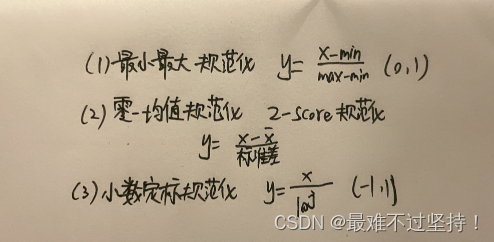 (1) 最小最大规范化 y= x-min / max-min (0,1)
(2) 零一均值规范化 z-score 规范化
y= x-x̄ / 标准差
(3) 小数定标规范化 y= x / 10^j (-1,1)
CSDN @最难不过坚持!